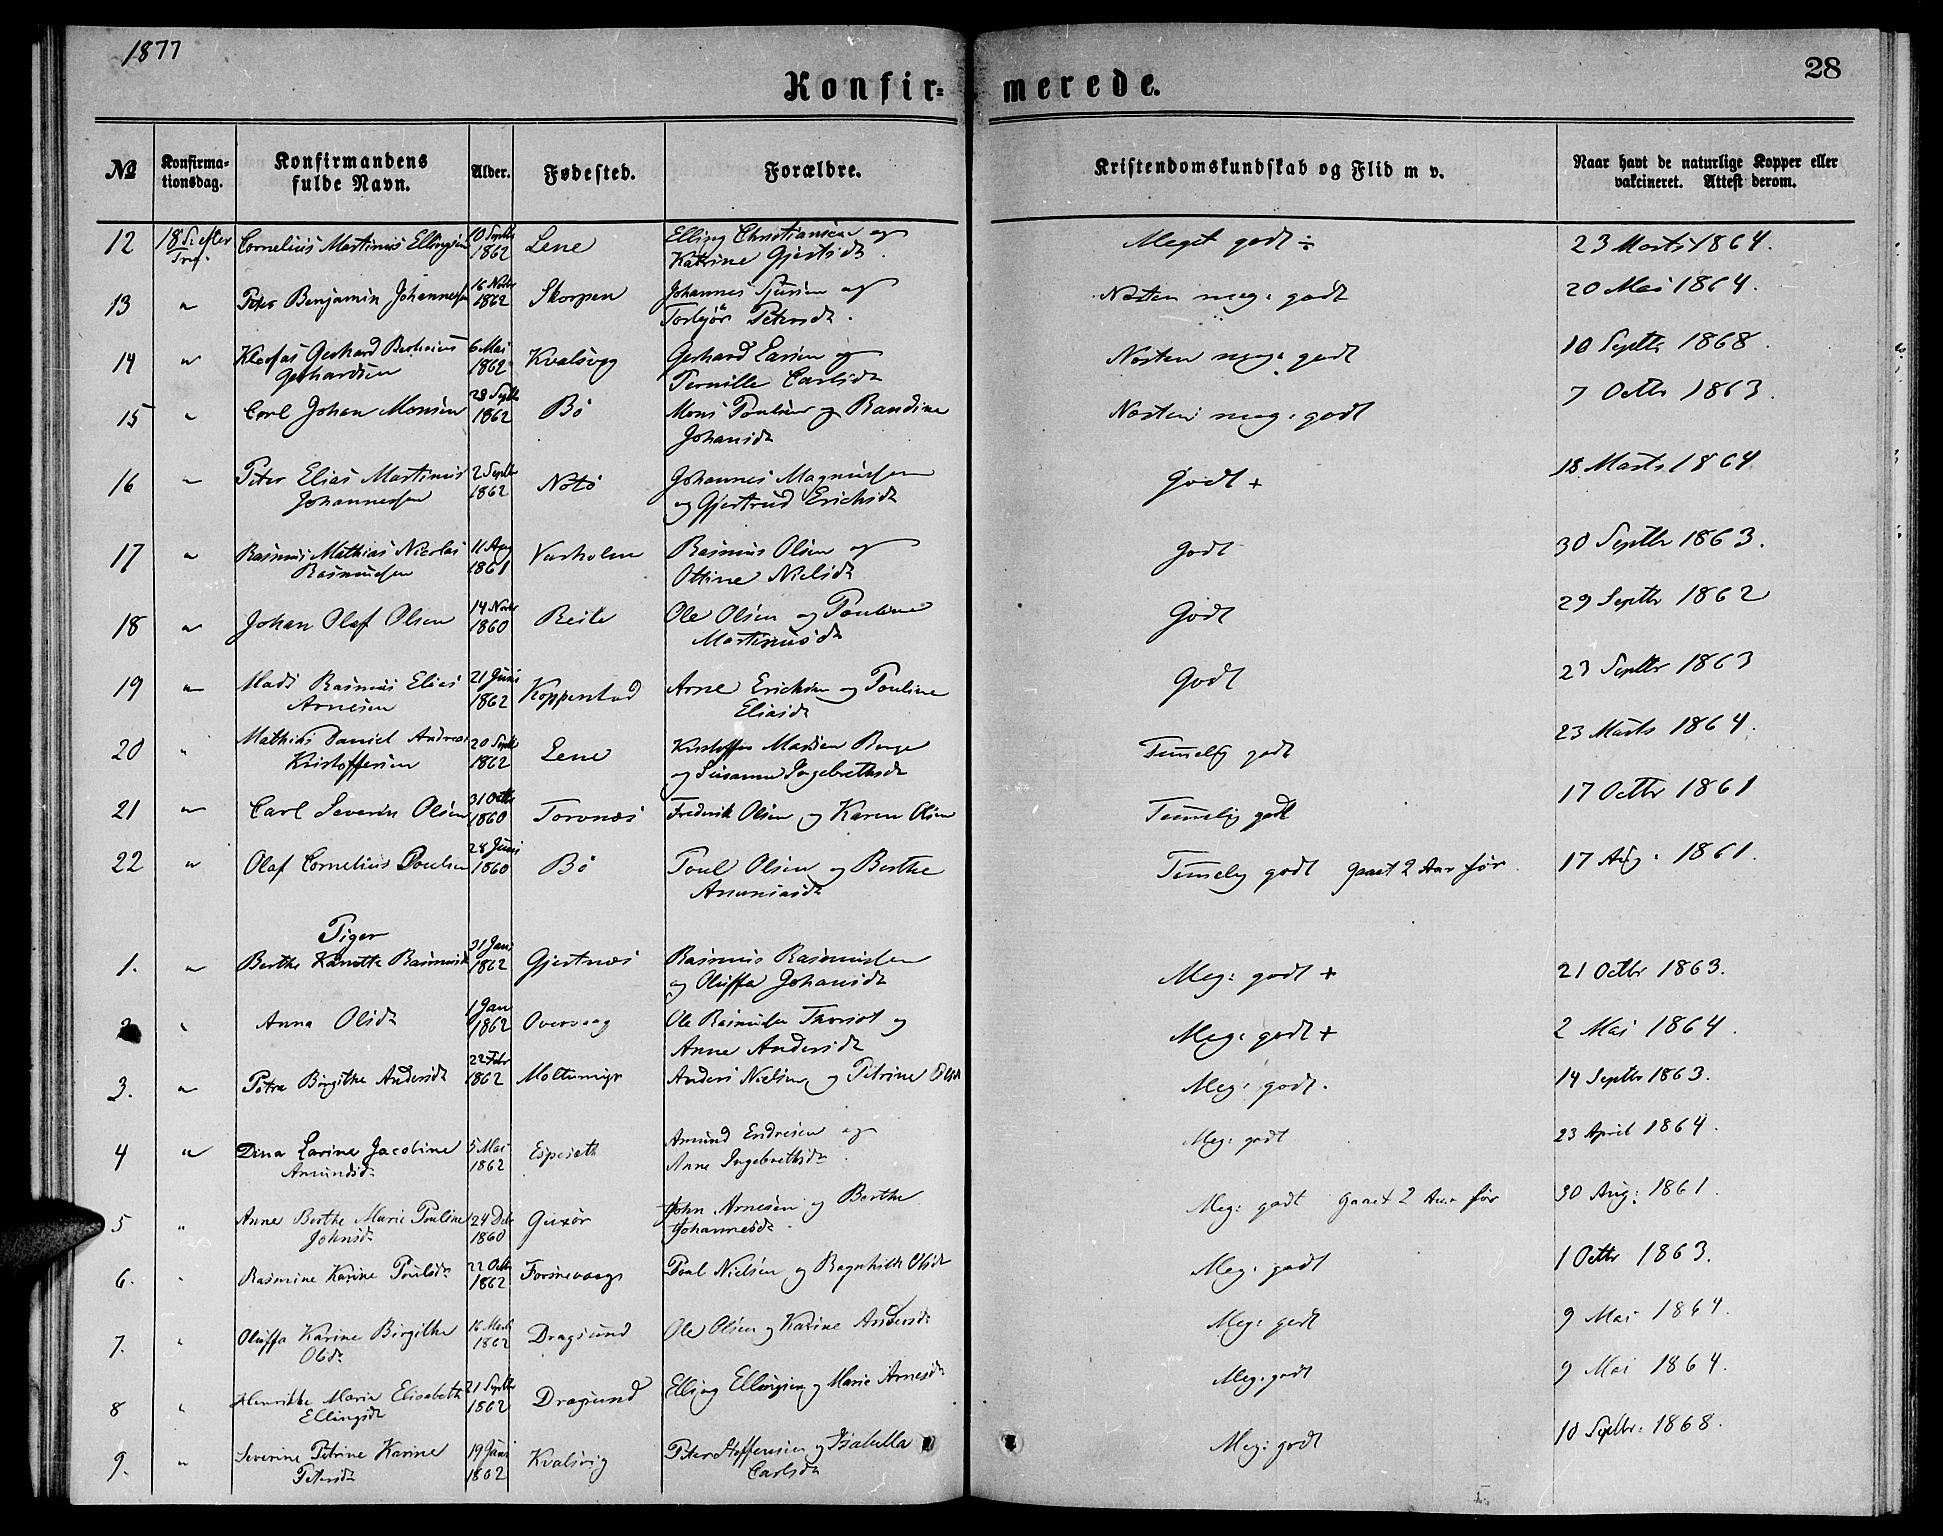 1877
28
Konfir= merede.
№ Konfirma-tionsdag. Konfirmandens fulde Navn. Alder. Fødested. Forældre. Kristendomskundskab og Flid m v. Naar havt de naturlige Kopper eller vakcineret. Attest derom.
12 18 S. efter Tref. Cornelius Martinus Ellingsen 10 Septbr 1862 Lene Elling Christiansen og Katrine Gjertsdt. Meget godt ÷ 23 Marts 1864.
13 " Peter Benjamin Johannesen 16 Novbr 1862 Skorpen Johannes Sjursen og Torbjør Petersdt. Næsten meg: godt 20 Mai 1864.
14 " Kleofas Gerhard Berhaius Gerhardsen 6 Mai 1862 Kvalsvig Gerhard Larsen og Pernille Carlsdt Næsten meg: godt 10 Septbr 1868.
15 " Carl Johan Monsen 28 Septbr 1862 Bø Mons Poulsen og Randine Johansdt Næsten meg: godt 7 Octbr 1863.
16 " Peter Elias Martinus Johannessen 2 Septbr 1862 Notø Johannes Magnussen og Gjertrud Erichsdt Godt + 18 Marts 1864
17 " Rasmus Mathias Nicolai Rasmussen 11 Aug 1861 Varholm Rasmus Olsen og Ottine Nielsdt Godt 30 Septbr 1863.
18 " Johan Olaf Olsen 14 Novbr 1860 Reite Ole Olsen og Pouline Martinusdt Godt 29 Septbr 1862
19 " Mads Rasmus Elias Arnesen 21 Juni 1862 Koppenstad Arne Ericksen og Pouline Eliasdt Godt 23 Septbr 1863
20 " Mathias Daniel Andreas Kristoffersen 20 Septbr 1862 Lene Kristoffer Madsen Berge og Susanne Ingebrethsdt Temmelig godt 23 Marts 1864.
21 " Carl Severin Olsen 31 Octbr 1860 Torvnæs Frederik Olsen og Karen Olsen Temmelig godt 17 Octbr 1861
22 " Olaf Cornelius Poulsen 28 Juni 1860 Bø Poul Olsen og Berthe Ananiasdt Temmelig godt gaaet 2 Aar før. 17 Aug: 1861.
Piger
1. " Berthe Hanette Rasmusdt 31 Jani 1862 Gjertnæs Rasmus Rasmussen og Oluffa Johansdt Meg: godt + 21 Octbr 1863.
2 " Anna Olsdt 1 Jan 1862 Overvaag Ole Rasmussen Thorset og Anne Andersdt Meg: godt + 2 Mai 1864.
3. " Petra Birgithe Andersdt 22 Febr 1862 Moltumyr Anders Nielsen og Petrine Olsdt Meg: godt. 14 Septbr 1863.
4 " Dina Larine Jacobine Amundsdt 5 Mai 1862 Espesæth Amund Endresen og Anne Ingebrethsdt. Meg: godt 23 April 1864.
5 " Anne Berthe Marie Pouline Johnsdt 24 Debr 1860 Gurør John Arnesen og Berthe Johannesdt. Meg: godt gaaet 2 Aar før 30 Aug: 1861.
6. " Rasmine Karine Poulsdt 22 Octbr 1862 Fosnevaag Poul Nielsen og Ragnhilde Olsdt Meg: godt 1 Octbr 1863.
7. " Oluffa Karine Birgithe Olsdt 16 Marts 1862 Dragsund Ole Olsen og Karine Andersdt Meg: godt 9 Mai 1864.
8 " Henrikke Marie Elisabeth Ellingsdt 21 Septbr 1862 Dragsund Elling Ellingsen og Marie Arnesdt Meg: godt 9 Mai 1864.
9. " Severine Petrine Karine Petersdt 19 Juni 1862 Kvalsvig Peter Steffensen og Isabella Carlsdt Meg: godt 10 Septbr: 1868.